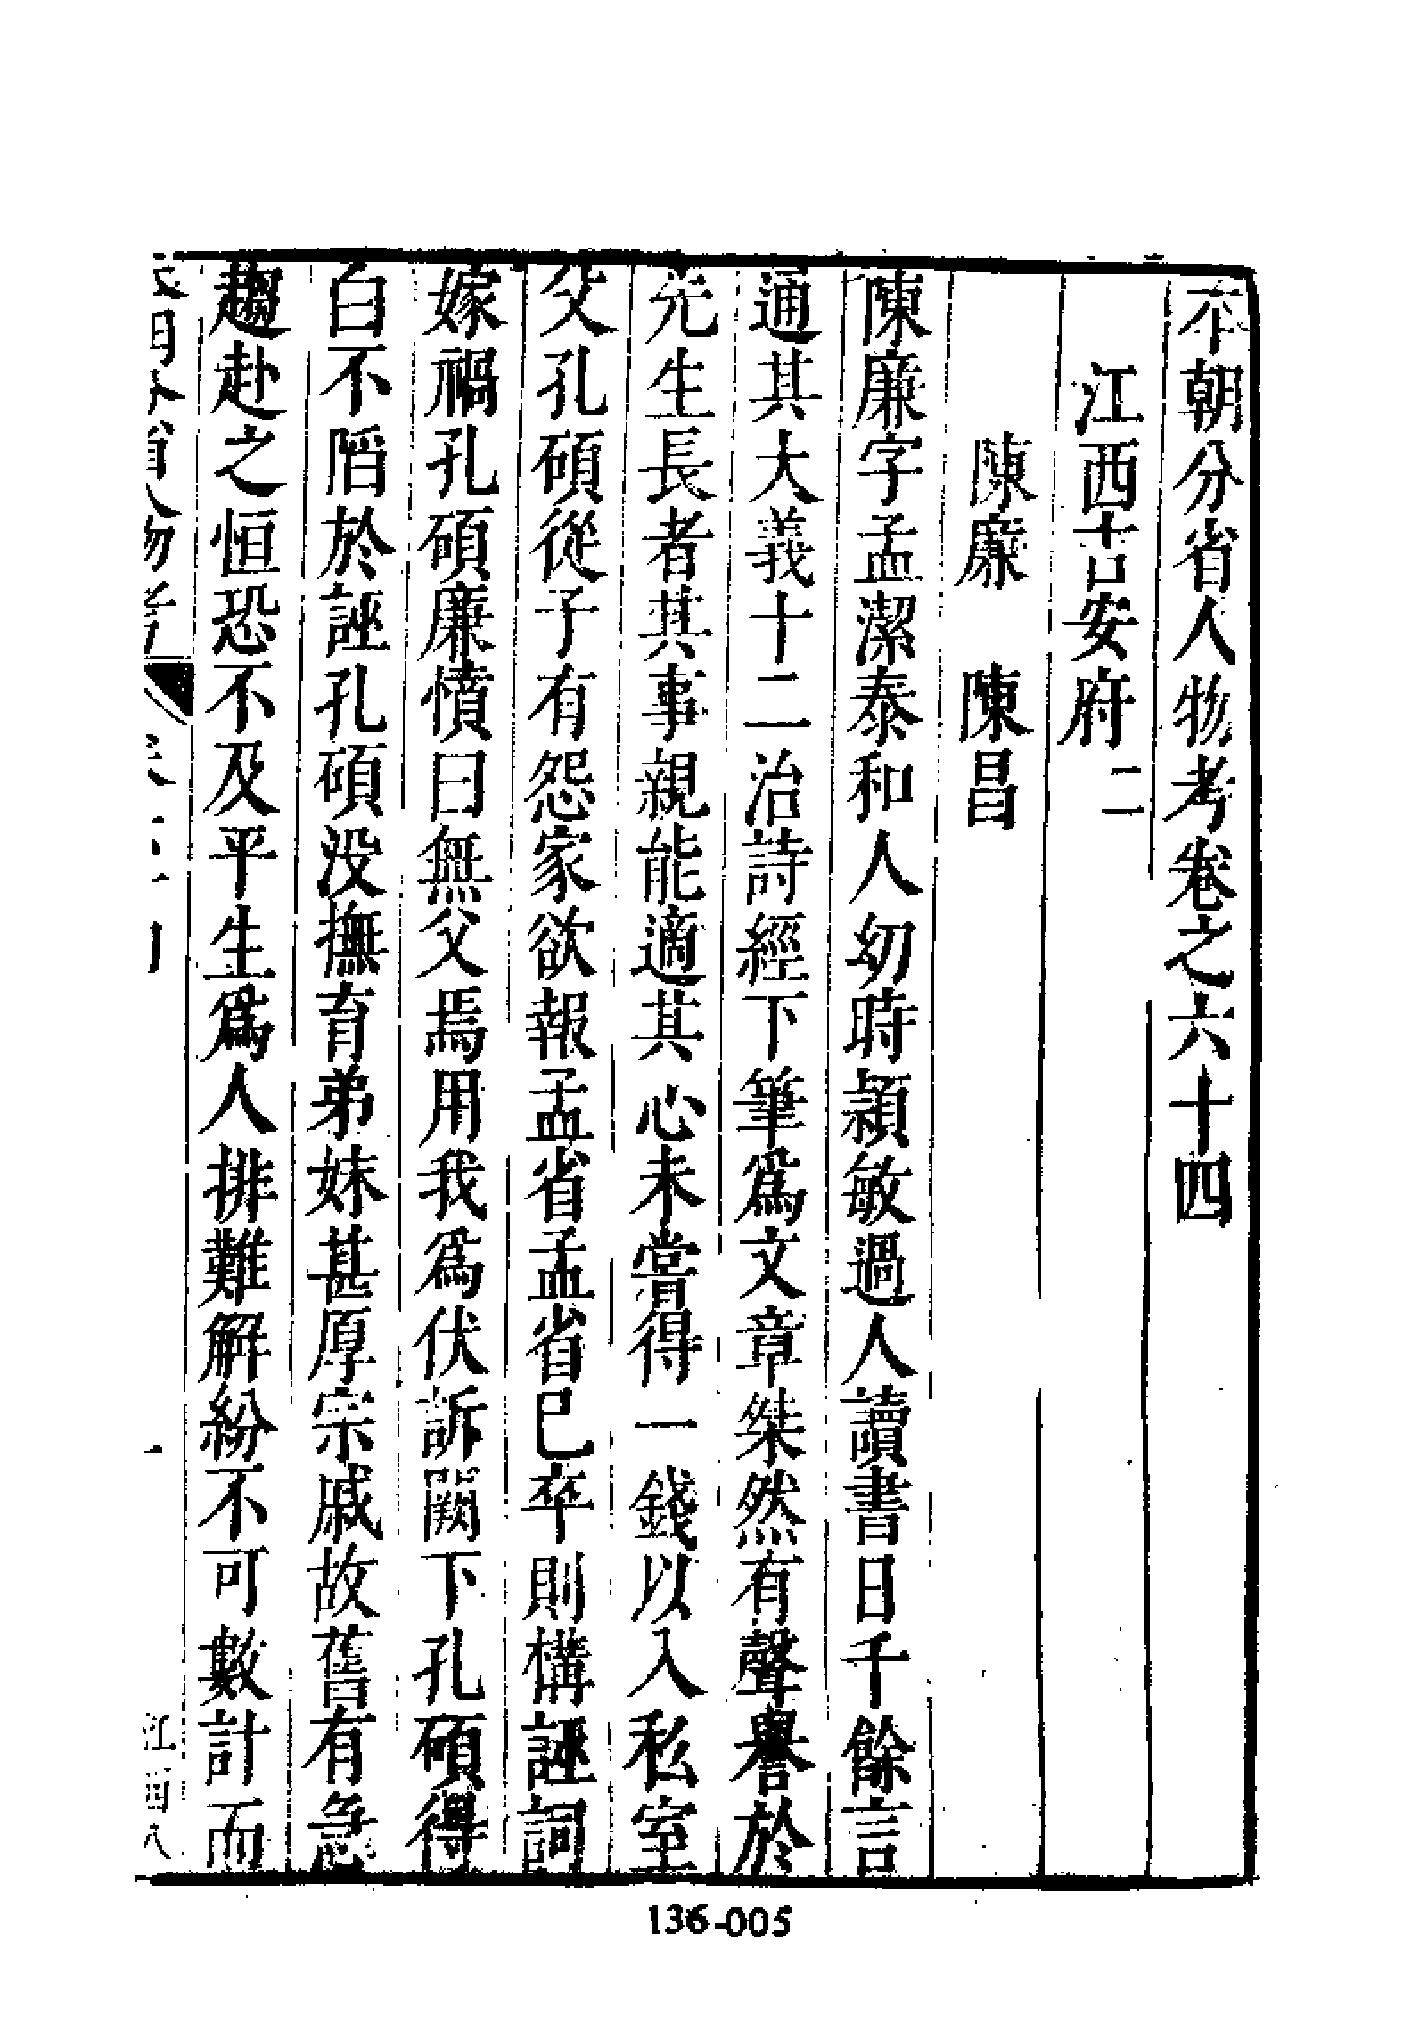 本朝分省人物考卷之六十四
江西吉安府二
陳廉　陳昌
陳廉字孟潔泰和人幼時頴敏過人讀書日千餘言
通其大義十二治詩經下筆爲文章桀然有聲譽於
先生長者其事親能適其心未嘗得一錢以入私室
父孔碩從子有怨家欲報孟省孟省巳卒則構誣詞
嫁禍孔碩廉憤曰無父焉用我爲伏訴闕下孔碩得
白不陷於誣孔碩没撫育弟妹甚厚宗戚故舊有急
趨赴之恒恐不及平生爲人排難解紛不可數計而
分省人物考
一
江西八
136-005